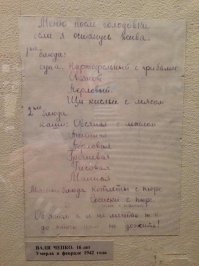 Меню после голодовки
если я останусь жива.
1ые блюда:
суп. Картофельный с грибами
Овсяной
Перловый
Щи кислые с мясом
2ые блюда
каши: Овсяная с маслом
Пшённая
Перловая
Гречневая
Рисовая
Манная
Мясные блюда котлеты с пюре
сосиски с пюре.
ВАЛЯ ЧЕПКО. 16 лет
Умерла в феврале 1942 года